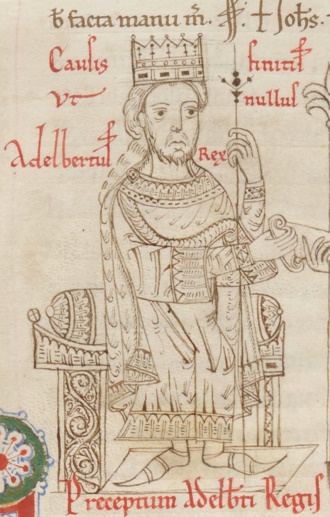 facta manu
Caulis finitis
Ut nullus
Adelbertus Rex
Preceptum Adelbti Regis